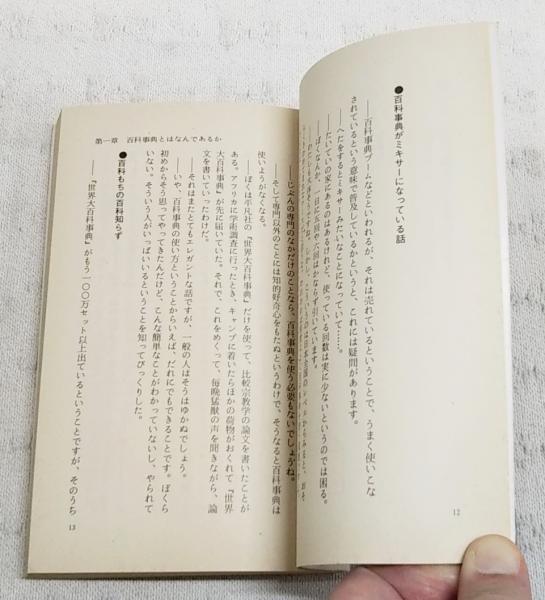 ●百科事典がミキサーになっている話
――百科事典ブームなどといわれるが、それは売れているということで、うまく使いこな
されているという意味で普及しているかというと、これには疑問があります。
――へたをするとミキサーみたいなことになっていて……。
たいていの家にあるのはあるけれど、使っている回数は実に少ないというのでは困る。
――ぼくなんか、一日に五回や六回はかならず引いています。
12
第一章 百科事典とはなんであるか
――じぶんの専門のなかだけのことなら、百科事典を使う必要もないでしょうね。
――そして専門以外のことには知的好奇心をもたぬというわけで、そうなると百科事典は
使いようがなくなる。
――ぼくは平凡社の『世界大百科事典』だけを使って、比較宗教学の論文を書いたことが
ある。アフリカに学術調査に行ったとき、キャンプに着いたらほかの荷物がおくれて『世界
大百科事典』が先に届いていた。それで、これをめくって、毎晩猛獣の声を聞きながら、論
文を書いていったわけだ。
――それはまたとてもエレガントな話ですが、一般の人はそうはゆかぬでしょう。
――いや、百科事典の使い方ということからいえば、だれにでもできることです。ぼくら
初めからそう思ってやってきたんだけど、こんな簡単なことがわかっていないし、やられて
いない。そういう人がいっぱいいるということを知ってびっくりした。
●百科もちの百科知らず
――『世界大百科事典』がもう一〇〇万セット以上出ているということですが、そのうち
13